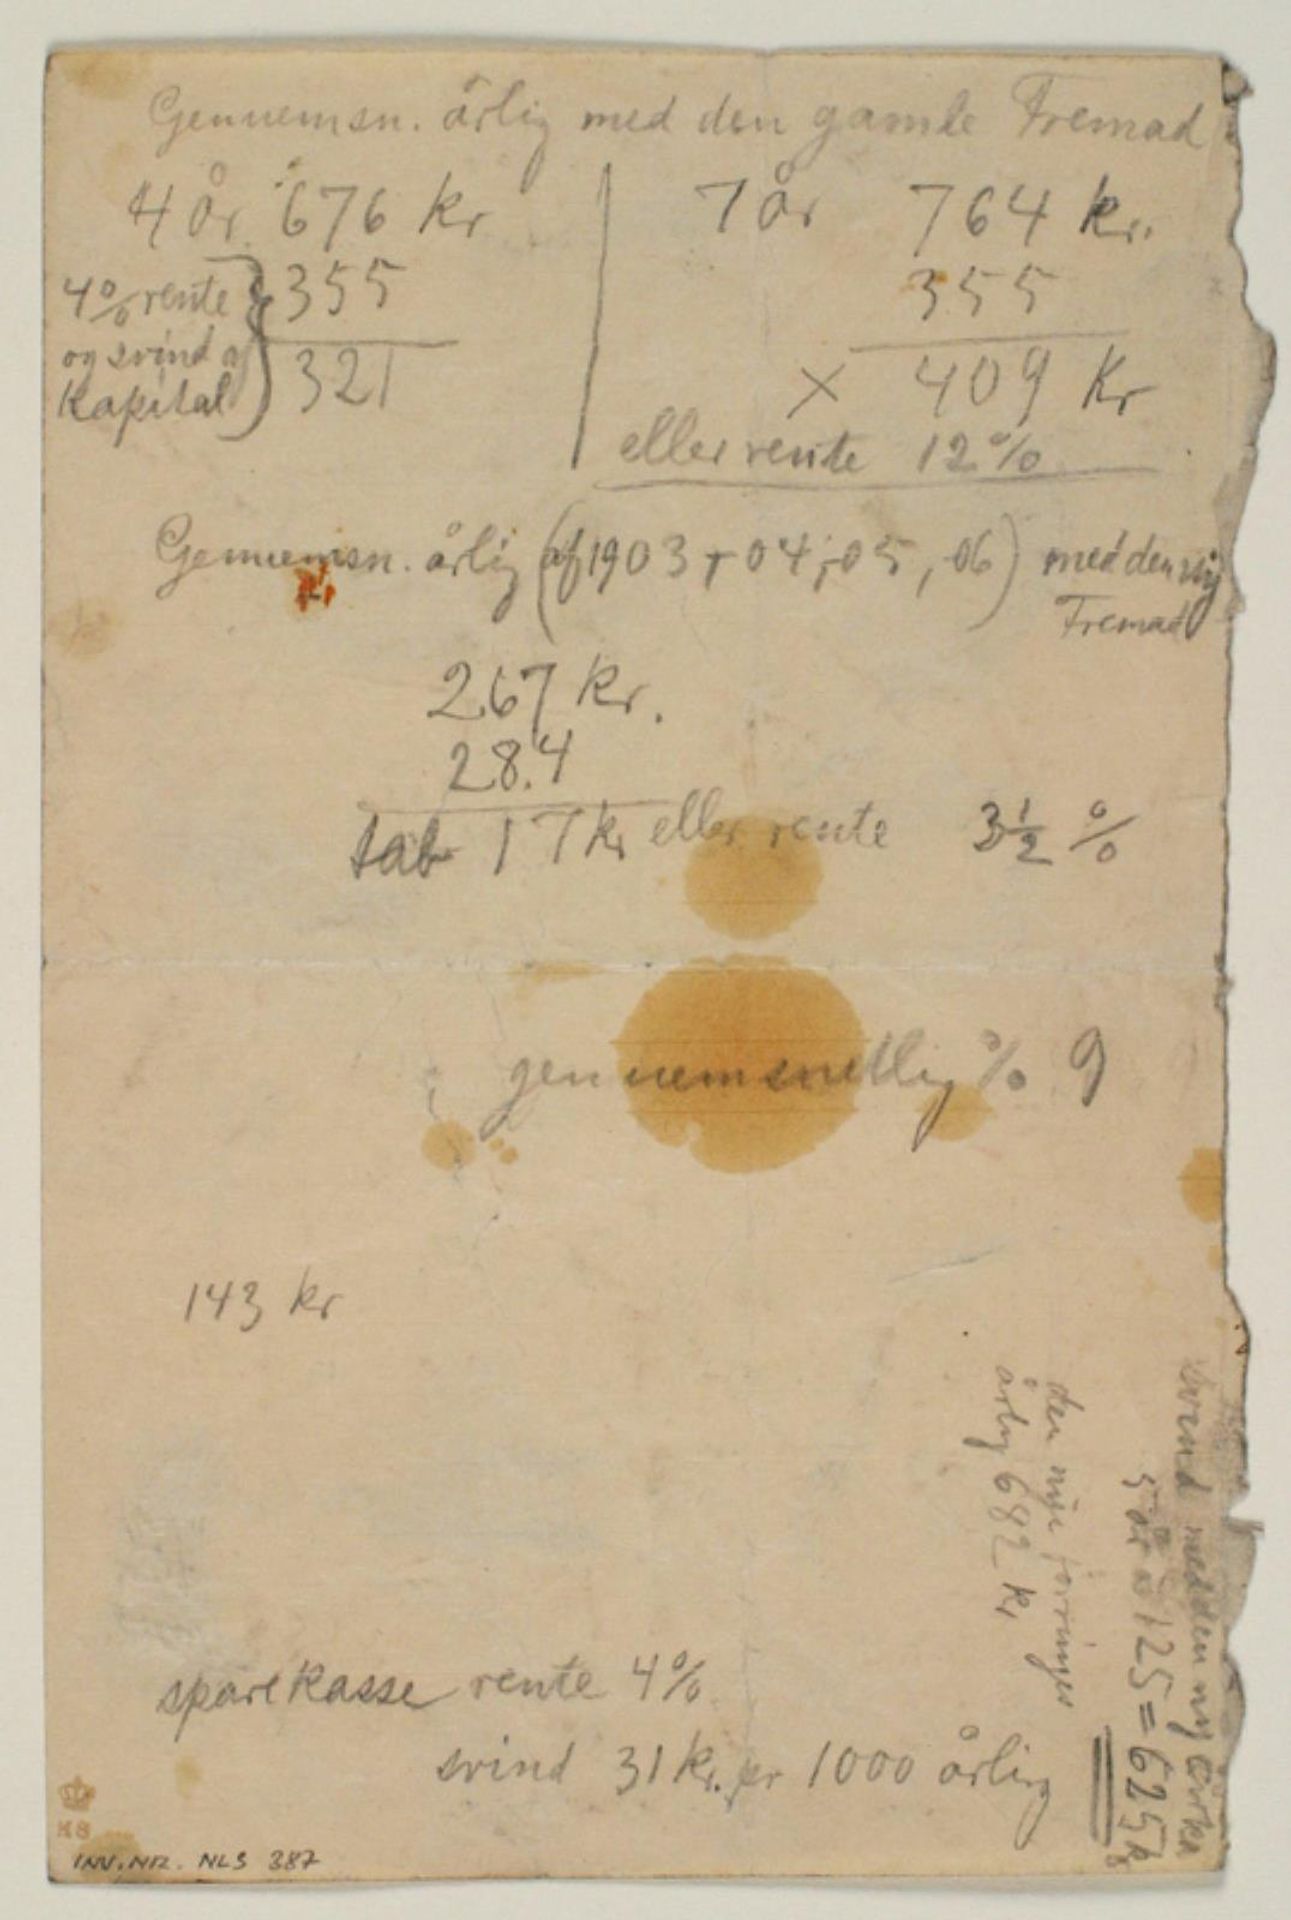 Gennemsn. årlig med den gamle Fremad
4 år 676 kr
4% rente
og svind af
Kapital
355
321
7 år 764 kr.
355
× 409 Kr
eller rente 12%
Gennemsn. årlig (af 1903 + 04, 05, 06) med den ny
Fremad
267 kr.
28.4
tab 17 kr eller rente 3½ %
gennemsnetlig % 9
143 kr
den nye forringes
årlig 682 kr
svind med den ny cirka
5 år a 125 = 625 k
sparekasse rente 4%
svind 31 kr. pr 1000 årlig
KS
INV.NR. NLS 387